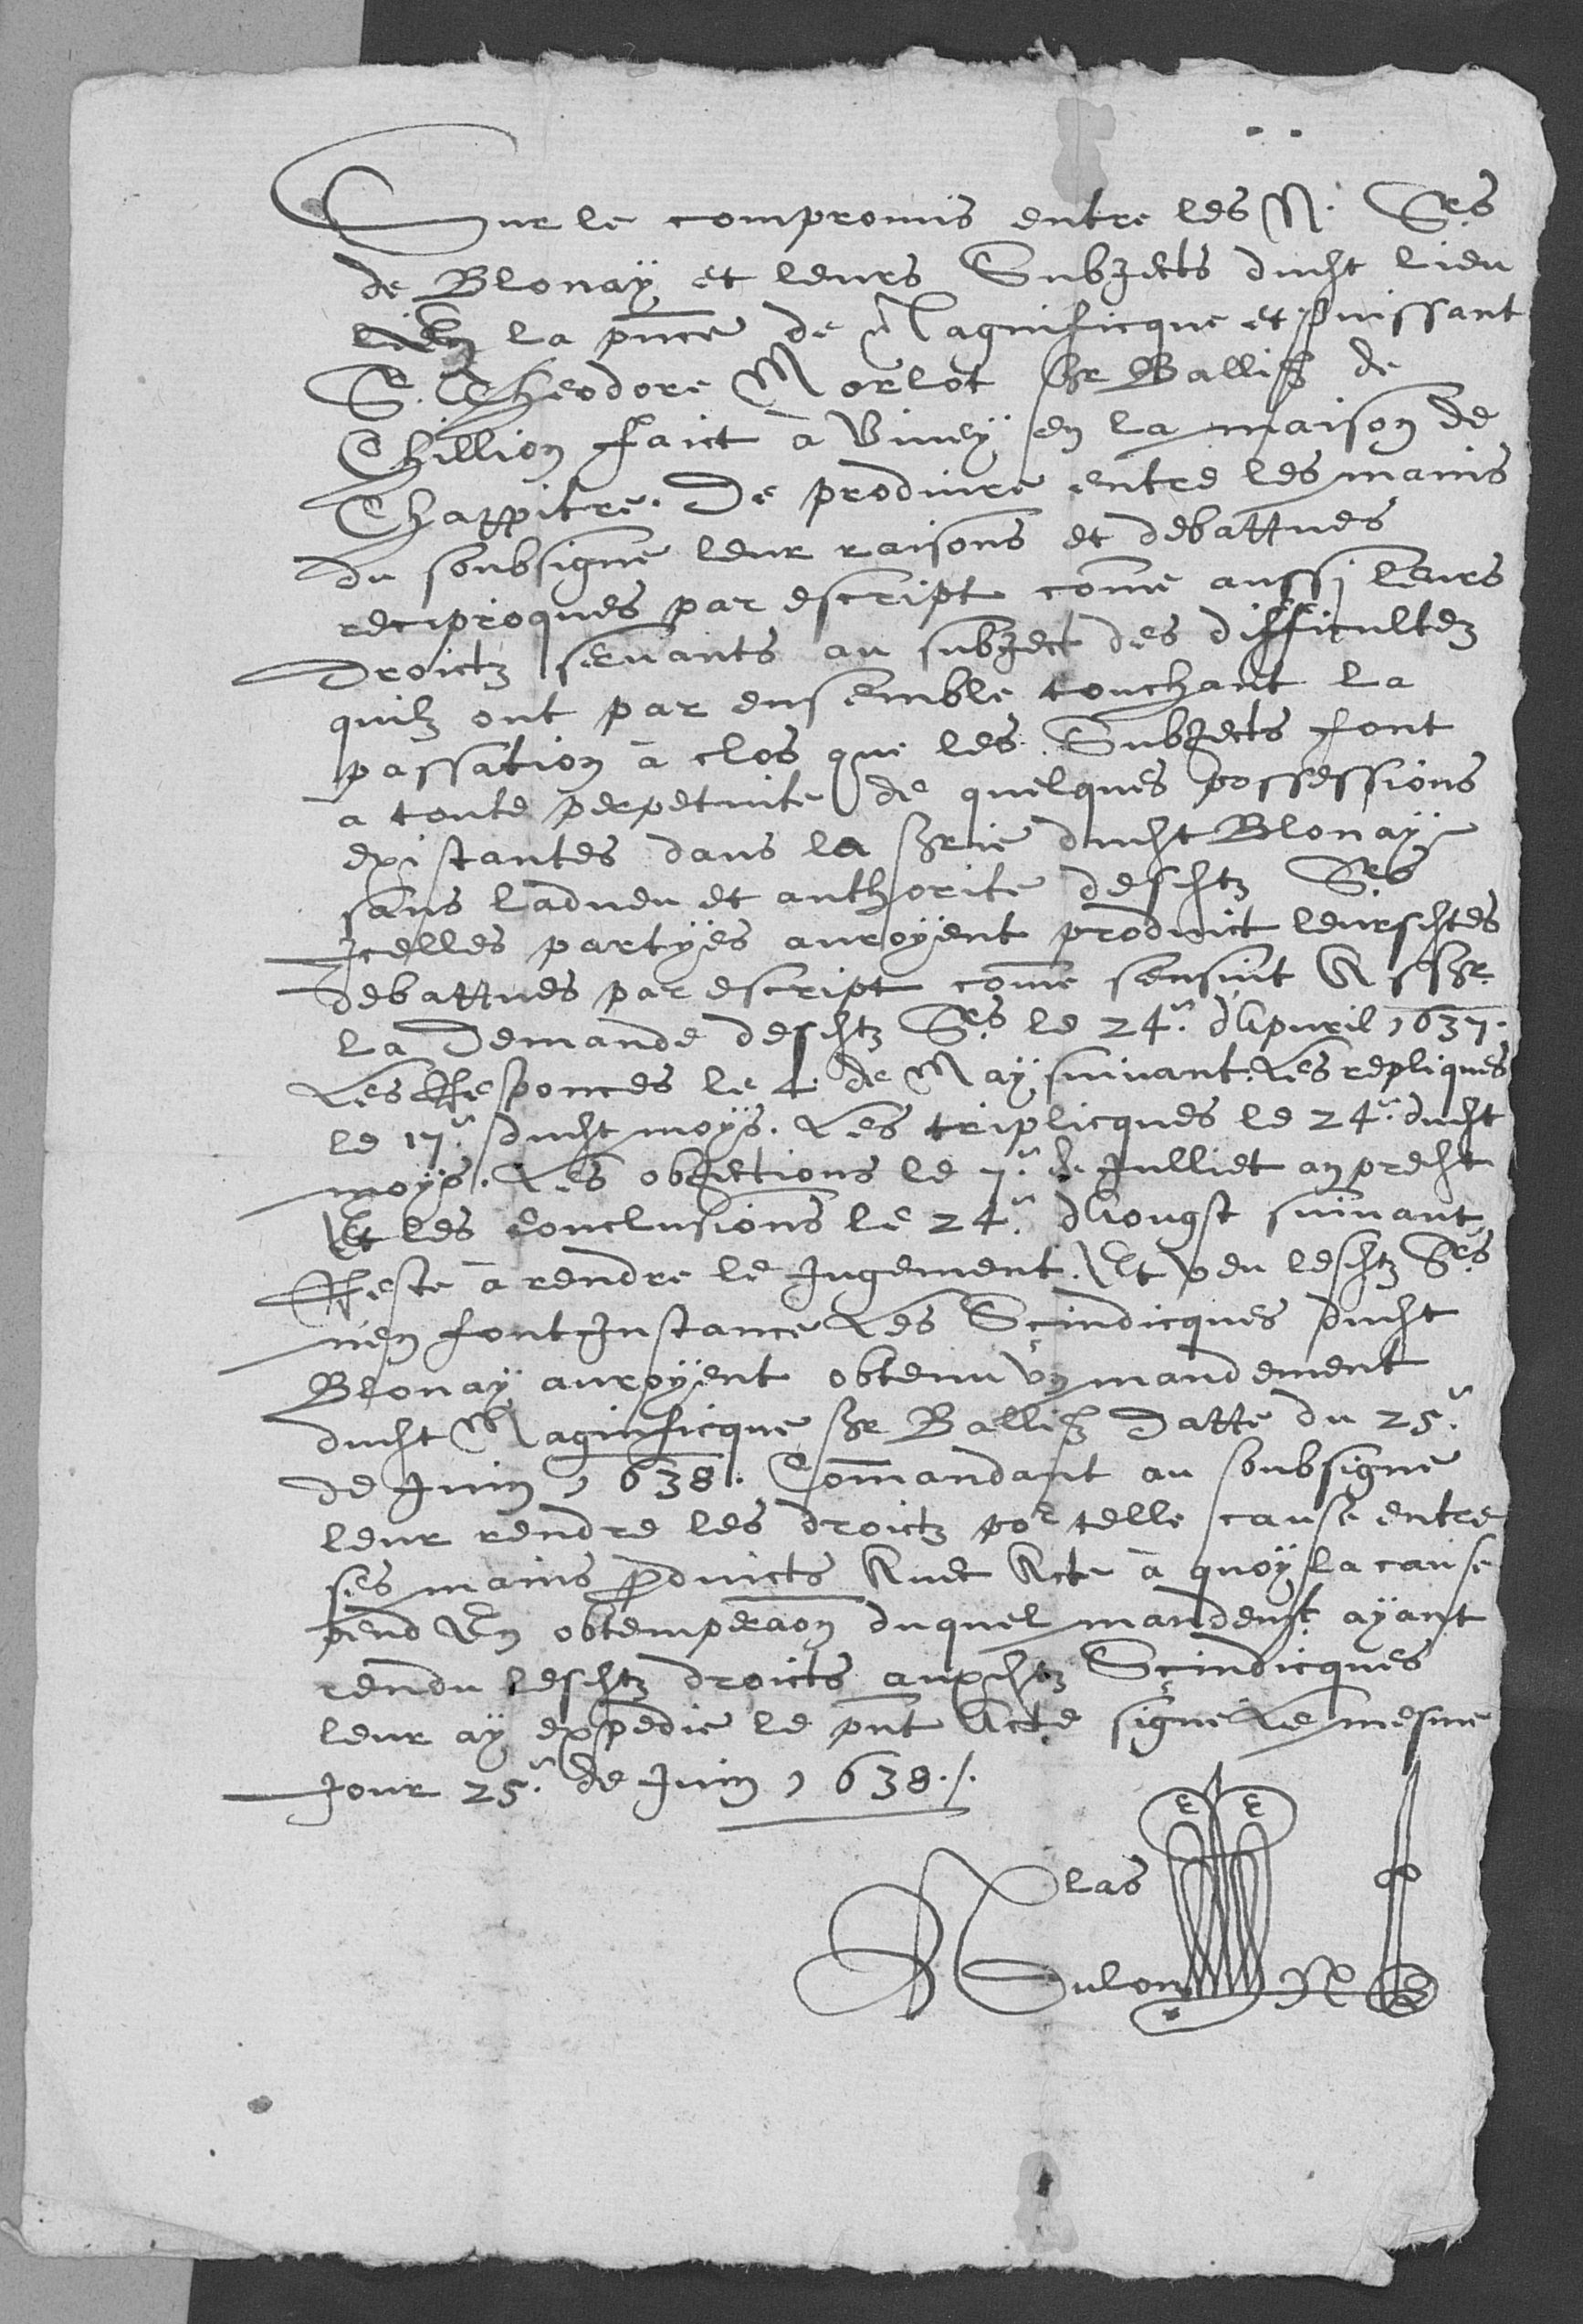 Sur le compromis entre les N. Srs
de Blonaÿ et leurs Subjects dudt lieu
en la pnce de Magnificque et puissant
S. Theodore Morlot Sgr Ballifz de
Chillion faict à Viueÿ en la maison de
Chappitre. De produire entre les mains
du soubsigne leur raisons et debattues
reciproques par escript come aussi leurs
Droictz seruants au subject des difficultez
quilz ont par ensemble touchant la
passation à clos que les Subjects font
a toute perpetuite de quelques possessions
existantes dans la Sgrie dudt Blonaÿ
sans ladueu et authorite desdtz Srs
Icelles partÿes auroÿent produict leursdtes
debattues par escript come sensuit A sscr
la Demande desdtz Srs le 24e. dApuril 1637.
Les Responces le 4. de Maÿ suiuant. Les repliques
le 17e. dudt moÿs. Les triplicques le 24e. dudt
moÿs. Les objections le 7e. de Julliet an predt
Et les conclusions le 24e. dAougst suiuant
Reste à rendre le Jugement. Et veu lesdtz Srs
nen font Instance Les Scindicques dudt
Blonaÿ auroÿent obtenu vn mandement
dudt Magnificque Sgr Ballifz Datte du 25e.
de Juin 1638. Comandant au soubsigne
leur rendre les droictz por telle cause entre
ses mains pduicts Auec Acte à quoÿ la cause
pend En obtemperaon duquel mandemt. aÿant
rendu lesdtz droicts auxdtz Scindicques
leur aÿ expedie le pnt Acte signe Le mesme
Jour 25e. de Juin 1638./.